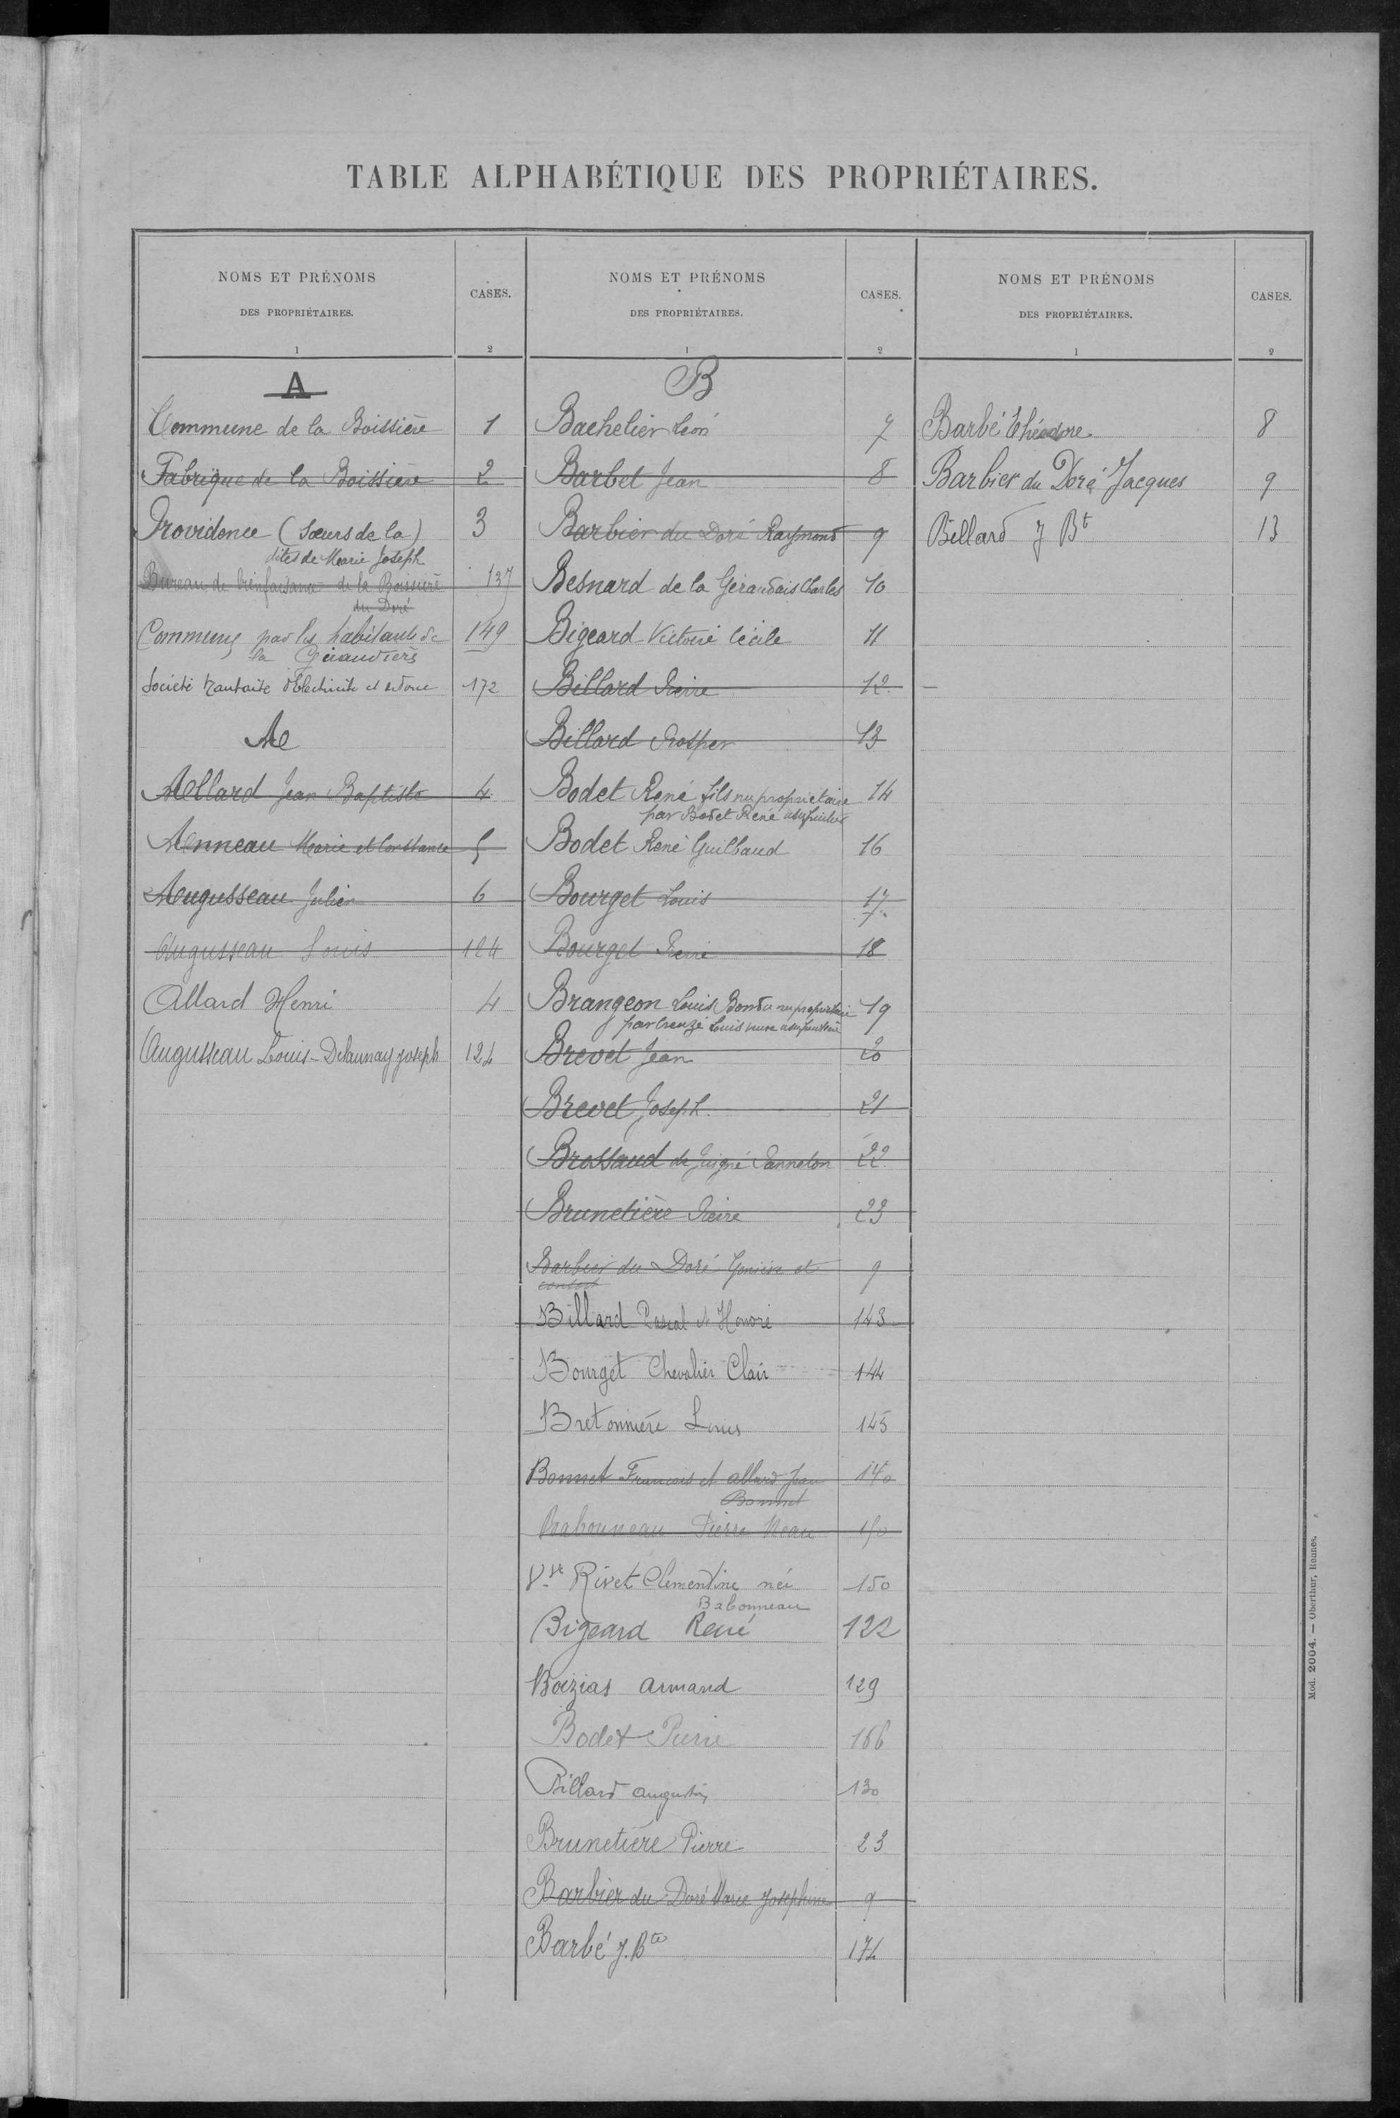 TABLE ALPHABÉTIQUE DES PROPRIÉTAIRES.
NOMS ET PRÉNOMS
DES PROPRIÉTAIRES.
1
CASES.
2
A
Commune de la Boissière 1
Fabrique de la Boissière 2
Providence (Sœurs de la) 3
dites de Marie Joseph
Bureau de bienfaisance de la Boissière 137
du Doré
Communs par les habitants de 149
la
Société Nantaise d'Electricité et 172
A
Allard Jean Baptiste 4
Anneau Marie et Constance 5
Augusseau Julien 6
Augusseau Louis 124
Allard Henri 4
Augusseau Louis-Delaunay Joseph 124
NOMS ET PRÉNOMS
DES PROPRIÉTAIRES.
1
CASES.
2
B
Bachelier Léon 7
Barbet Jean 8
Barbier du Doré Raymond 9
Besnard de la Giraudais Charles 10
Bigeard Victoire Cécile 11
Billard Pierre 12
Billard Prosper 13
Bodet René fils nu propriétaire 14
par Bodet René usufruitier
Bodet René Guilbaud 16
Bourget Louis 17
Bourget Pierre 18
Brangeon Louis Bondu nu propriétaire 19
par Louis usufruitier
Brevet Jean 20
Brevet Joseph 21
Brossaud de Juigné Panneton 22
Brunetière Pierre 23
Barbier du Doré et 9
consort
Billard Pascal et Honoré 143
Bourget Chevalier Clair 144
Bretonnière Louis 145
Bonnet Francois et allard Jean 140
Bonnet
Babonneau Pierre 150
Vve Rivet Clémentine née 150
Babonneau
Bigeard René 122
Boizias Armand 129
Bodet Pierre 166
Billard Augustin 130
Brunetière Pierre 23
Barbier du Doré Marie Joséphine 9
Barbé J. Bte 174
NOMS ET PRÉNOMS
DES PROPRIÉTAIRES.
1
CASES.
2
Barbé Théodore 8
Barbier du Doré Jacques 9
Billard J Bt 13
Mod. 2004. — Oberthur, Rennes.